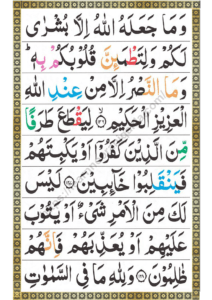 وَمَا جَعَلَهُ اللّٰهُ اِلَّا بُشْرٰى
لَكُمْ وَلِتَطْمَئِنَّ قُلُوْبُكُمْ بِهٖ ؕ
وَمَا النَّصْرُ اِلَّا مِنْ عِنْدِ اللّٰهِ
الْعَزِيْزِ الْحَكِيْمِ ۙ﴿۱۲۶﴾ لِيَقْطَعَ طَرَفًا
مِّنَ الَّذِيْنَ كَفَرُوْۤا اَوْ يَكْبِتَهُمْ
فَيَنْقَلِبُوْا خَآئِبِيْنَ ﴿۱۲۷﴾ لَيْسَ
لَكَ مِنَ الْاَمْرِ شَيْءٌ اَوْ يَتُوْبَ
عَلَيْهِمْ اَوْ يُعَذِّبَهُمْ فَاِنَّهُمْ
ظٰلِمُوْنَ ﴿۱۲۸﴾ وَلِلّٰهِ مَا فِى السَّمٰوٰتِ